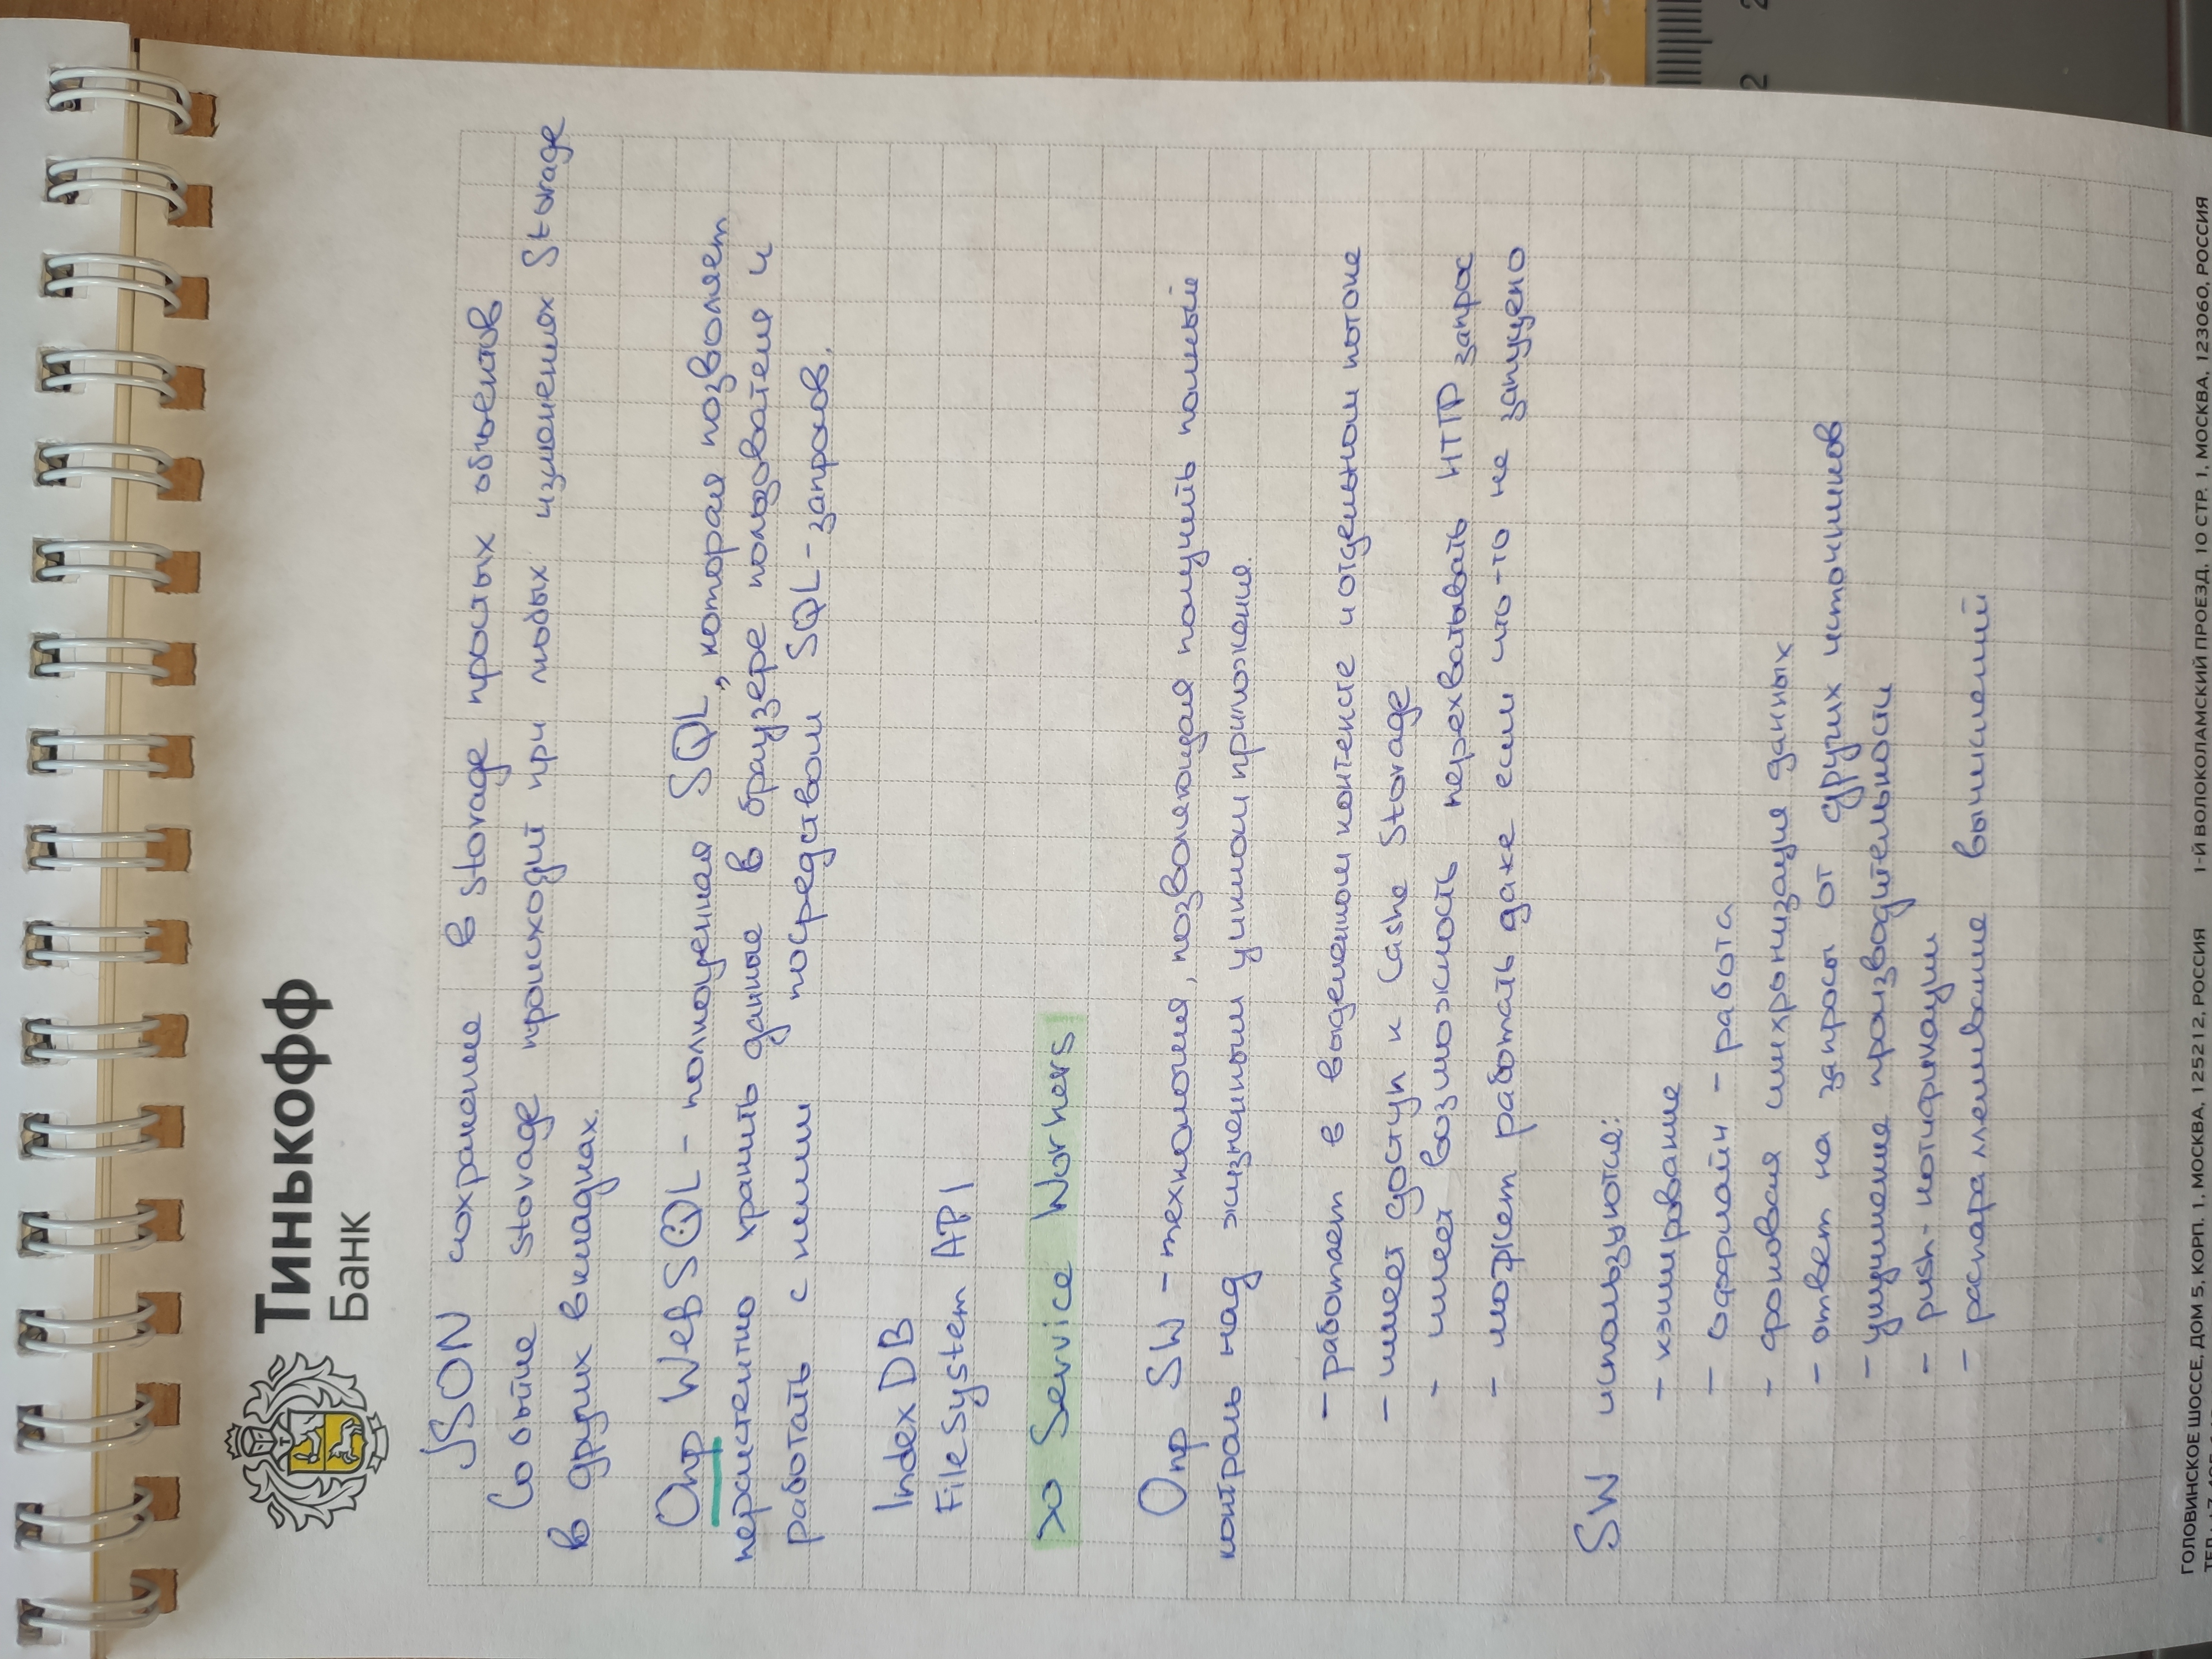 Тинькофф
Банк
JSON сохранение в storage простых объектов
Событие storage происходит при любых изменениях Storage
в других вкладках.
Опр WebSQL - полноценная SQL, которая позволяет
персистентно хранить данные в браузере пользователя и
работать с ними посредством SQL-запросов.
Index DB
FileSystem API
Service Workers
Опр SW - технология, позволяющая получить полный
контроль над жизненным циклом приложения.
- работает в выделенном контексте и отдельном потоке
- имеет доступ к Cashe Storage
- имеет возможность перехватывать HTTP запрос
- может работать даже если что-то не запущено
SW используются:
- кэширование
- оффлайн - работа
- фоновая синхронизация данных
- ответ на запросы от других источников
- улучшение производительности
- push-нотификации
- распараллеливание вычислений
ГОЛОВИНСКОЕ ШОССЕ, ДОМ 5, КОРП. 1, МОСКВА, 125212, РОССИЯ 1-Й ВОЛОКОЛАМСКИЙ ПРОЕЗД, 10 СТР. 1, МОСКВА, 123060, РОССИЯ